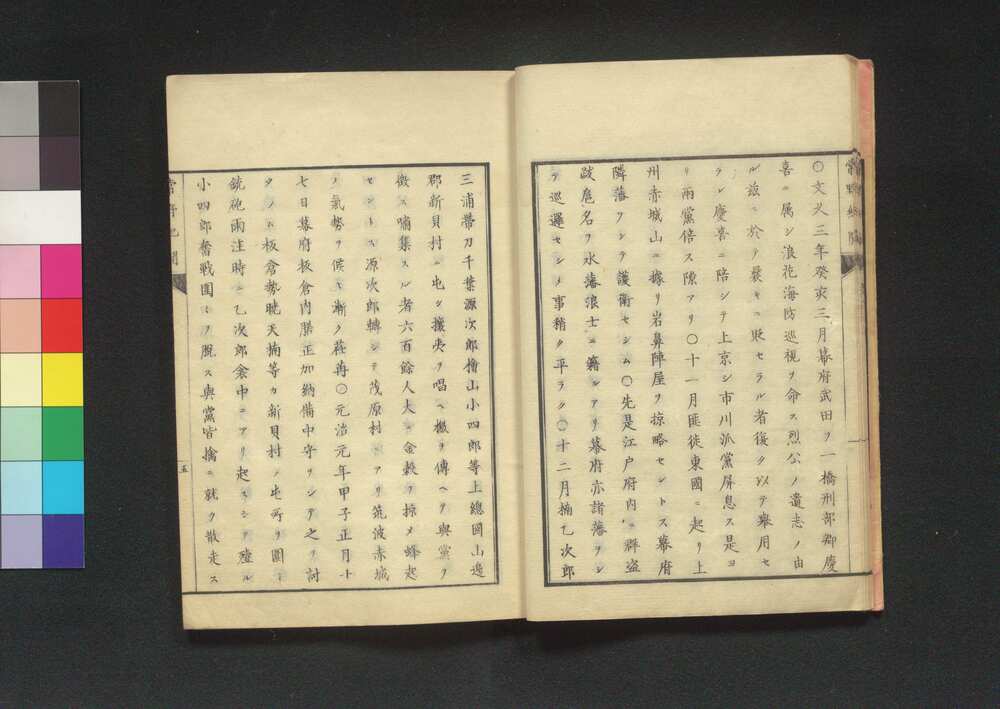 〇文久三年癸亥三月幕府武田ヲ一橋刑部卿慶
喜ニ属シ浪花海防巡視ヲ命ス烈公ノ遺志ノ由
ル玆ニ於テ曩キニ貶セラル者復タ以テ挙用セ
ラレ慶喜ニ陪シテ上京シ市川派黨屏息ス是ヨ
リ兩黨倍ス隙アリ〇十一月匪徒東國ニ起リ上
州赤城山ニ據リ岩鼻陣屋ヲ掠略セントス幕府
隣藩ヲシテ護衛セシム〇先是江户府内ニ群盗
跋扈名ヲ水藩浪士ニ籍ルアリ幕府亦諸藩ヲシ
テ巡邏セシメ事稍ク平ラク〇十二月楠乙次郎
三浦帶刀千葉源次郎檜山小四郎等上總國山邊
郡新貝村ニ屯シ攘夷ヲ唱ヘ檄ヲ傳ヘテ與黨ヲ
徴ス嘯集スル者六百餘人大ニ金穀ヲ掠メ蜂起
セントス源次郎轉シテ茂原村ニアリ筑波赤城
ノ氣勢ヲ候ヒ漸ク荏苒〇元治元年甲子正月十
七日幕府板倉内膳正加納備中守ヲシテ之ヲ討
タシム板倉勢暁天楠等カ新貝村ノ屯所ヲ圍ミ
銃砲雨注時ニ乙次郎衾中ニアリ起スシテ殪ル
小四郎奮戦圍ミヲ脱ス與黨皆擒ニ就ク散走ス
五